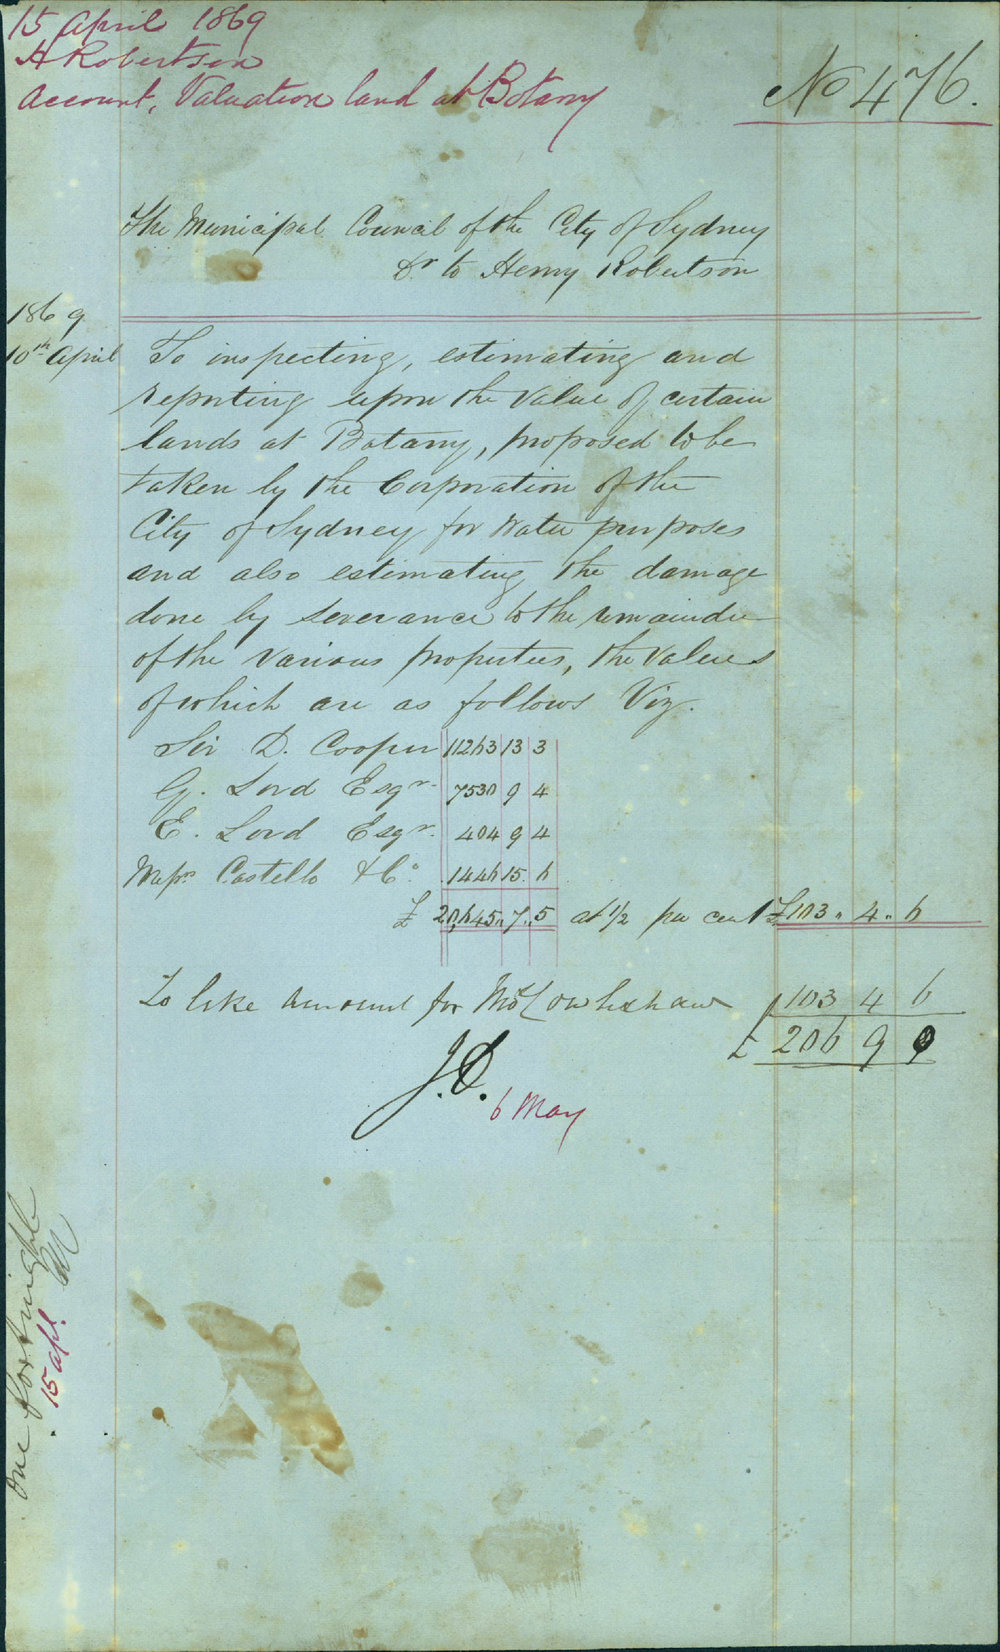 15 April 1869
H Robertson
Account, Valuation land at Botany
No 476.
The Municipal Council of the City of Sydney
Dr to Henry Robertson
1869
10th April To inspecting, estimating and
reporting upon the Value of certain
lands at Botany, proposed to be
taken by the Corporation of the
City of Sydney for Water purposes
and also estimating the damage
done by severance to the remainder
of the various properties, the values
of which are as follows Viz.
Sir D. Cooper 11263 13 3
G. Lord Esqr. 7530 9 4
E. Lord Esqr. 404 9 4
Messrs Castello & Co. 1446 15. 6
£ 20,645 " 7 " 5 at 1/2 per cent £103 " 4 " 6
To like amount for Mr 103 4 6
£ 206 9 0
J.D.
6 May
One fortnight
15 Apl.